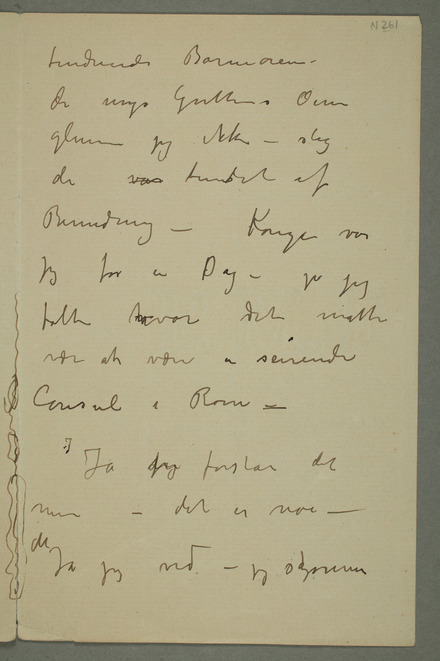 N 261
tindrende Barneøren –
de unge Gutters Øine
glemmer jeg ikke – slig
de var tændt af
Beundring – Konge var
jeg for en Dag – ja jeg
følte hvor det måtte
vær at være en seirende
Consul i Rom –
Ja jeg forstår det
men – det er noe –
Ja jeg ved – jeg skjønner